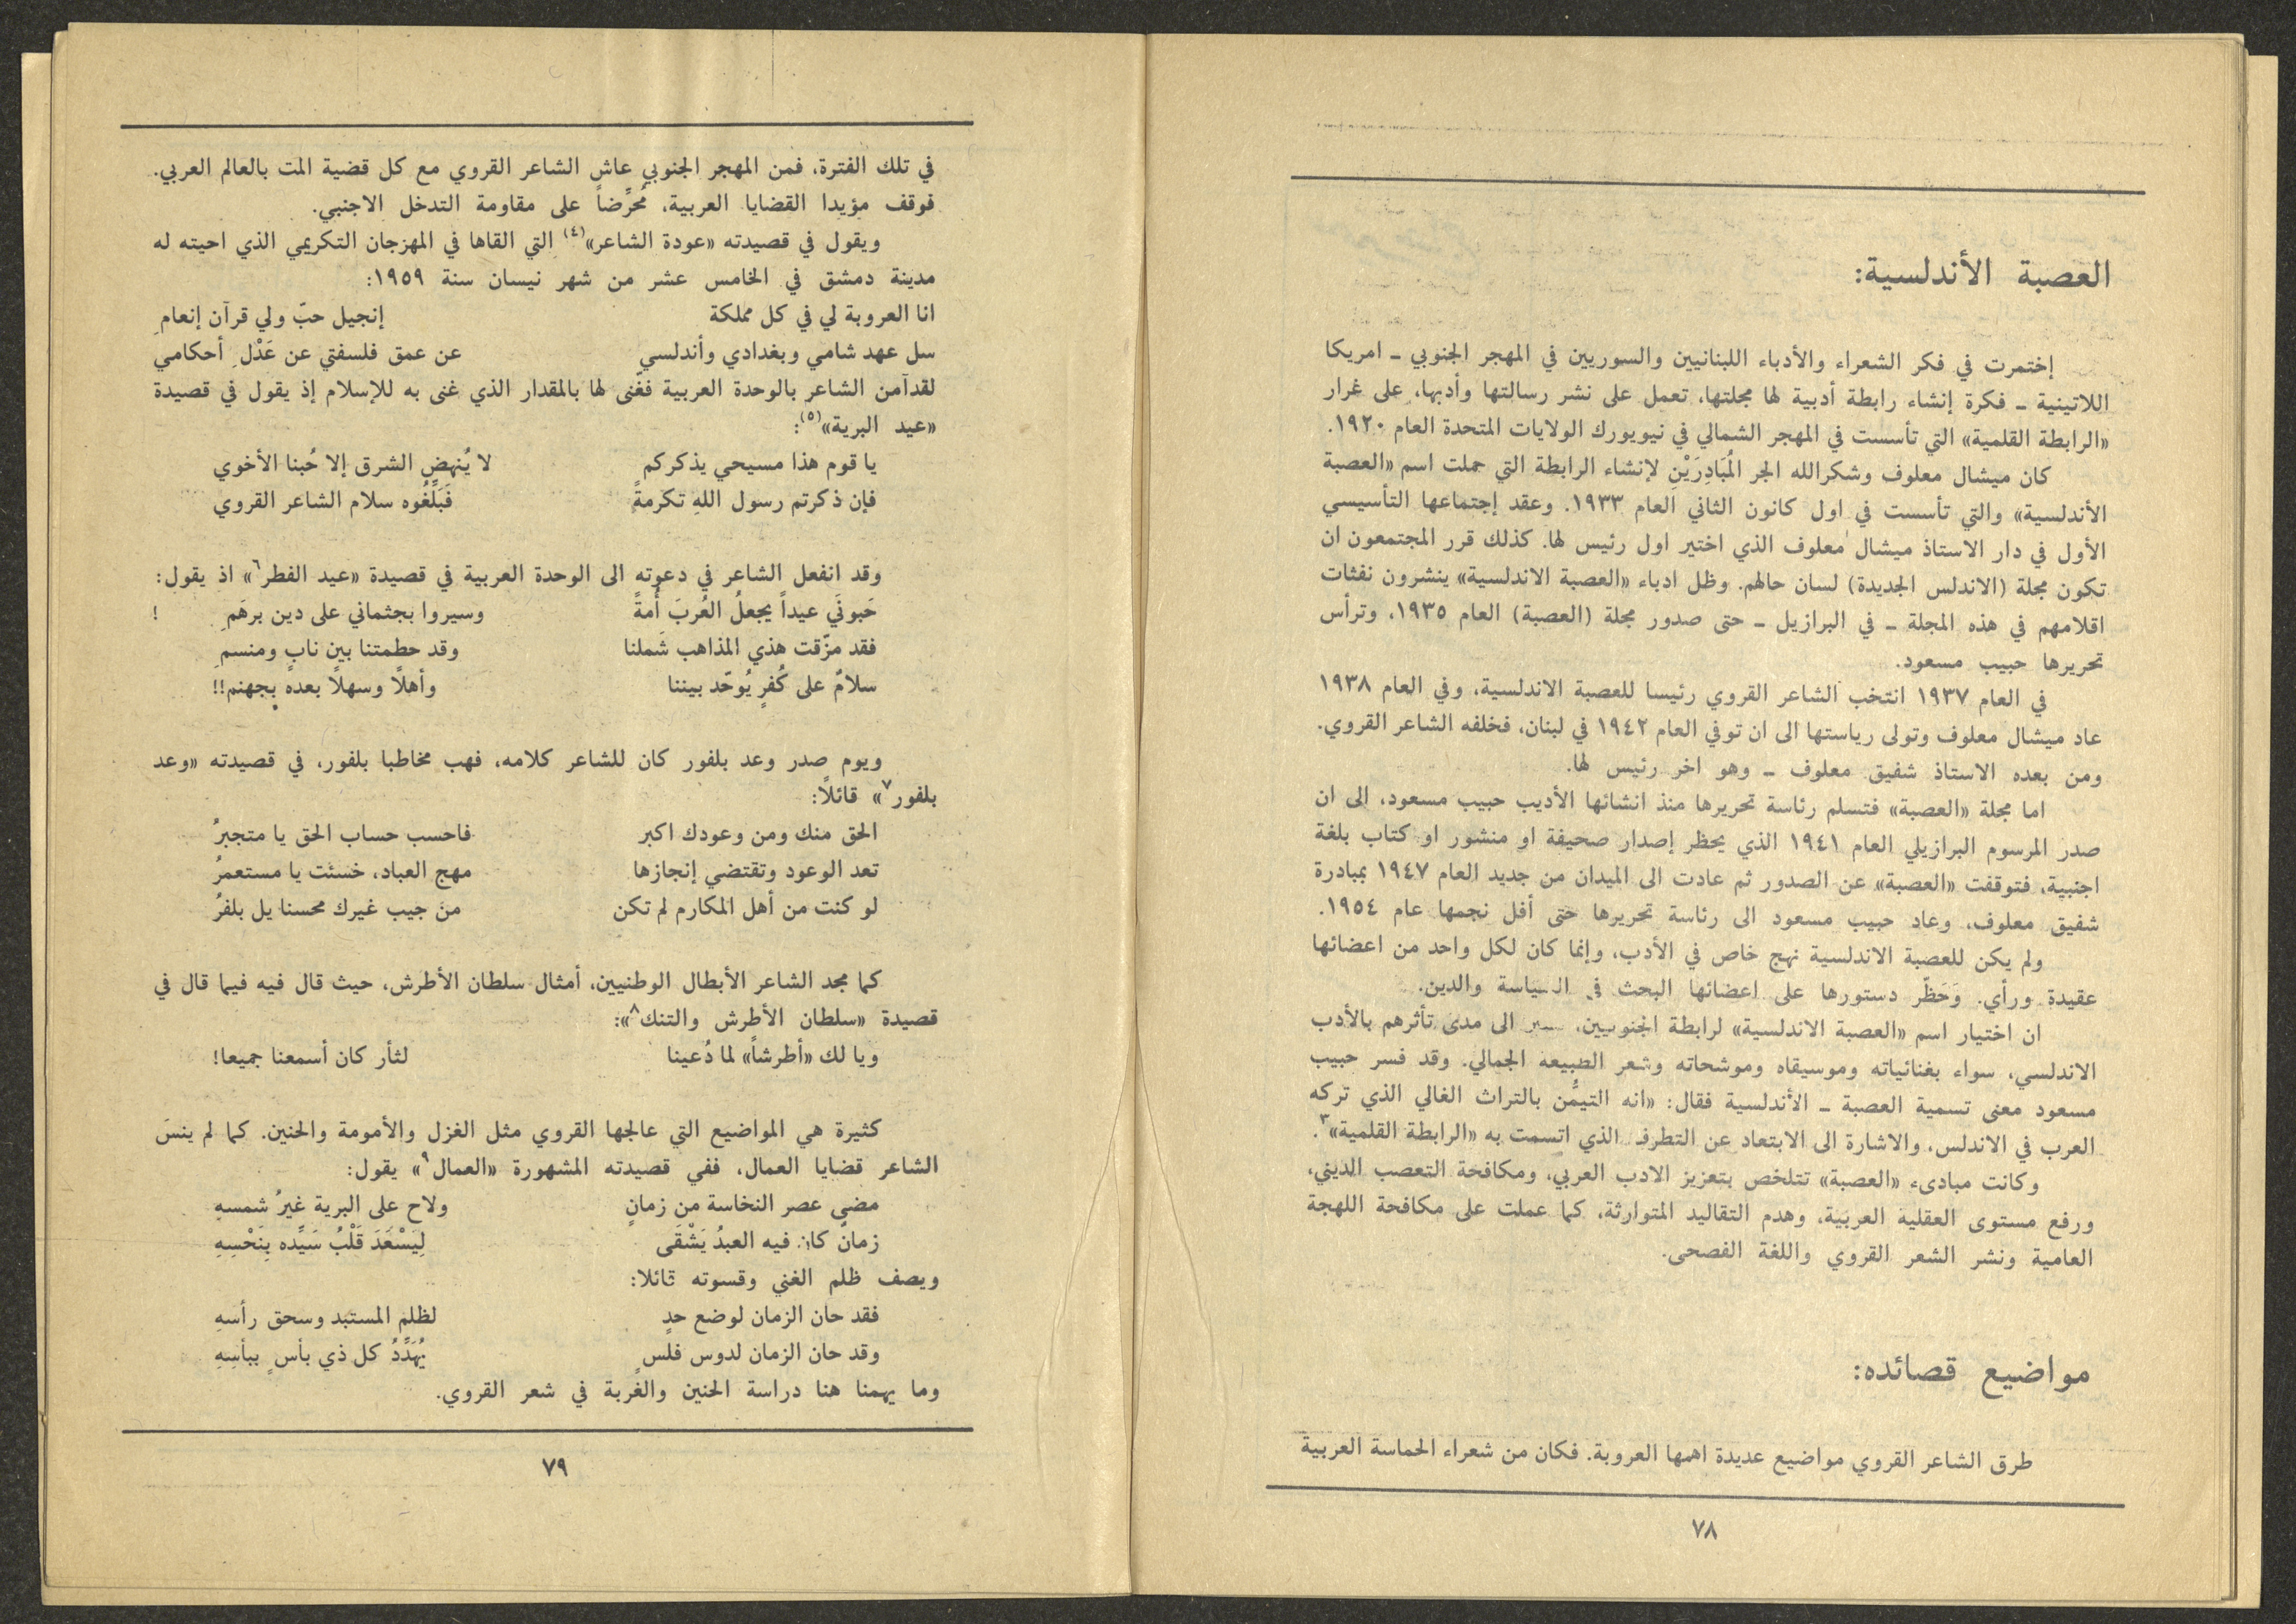 العصبة الأندلسية:
إختمرت في فكر الشعراء والأدباء اللبنانيين والسوريين في المهجر الجنوبي ـ امريكا
اللاتينية ـ فكرة إنشاء رابطة أدبية لها مجلتها، تعمل على نشر رسالتها وأدبها، على غرار
«الرابطة القلمية» التي تأسست في المهجر الشمالي في نيويورك الولايات المتحدة العام ١٩٢٠.
كان ميشال معلوف وشكرالله الجر المُبَادِرَيْن لإنشاء الرابطة التي حملت اسم «العصبة
الأندلسية» والتي تأسست في اول كانون الثاني العام ١٩٣٣. وعقد إجتماعها التأسيسي
الأول في دار الاستاذ ميشال معلوف الذي اختير اول رئيس لها. كذلك قرر المجتمعون ان
تكون مجلة (الاندلس الجديدة) لسان حالهم. وظل ادباء «العصبة الاندلسية» ينشرون نفثات
اقلامهم في هذه المجلة ـ في البرازيل ـ حتى صدور مجلة (العصبة) العام ١٩٣٥، وترأس
تحريرها حبيب مسعود.
في العام ١٩٣٧ انتخب الشاعر القروي رئيسا للعصبة الاندلسية، وفي العام ١٩٣٨
عاد ميشال معلوف وتولى رياستها الى ان توفي العام ١٩٤٢ في لبنان، فخلفه الشاعر القروي.
ومن بعده الاستاذ شفيق معلوف ـ وهو اخر رئيس لها.
اما مجلة «العصبة» فتسلم رئاسة تحريرها منذ انشائها الأديب حبيب مسعود، الى ان
صدر المرسوم البرازيلي العام ١٩٤١ الذي يحظر إصدار صحيفة او منشور او كتاب بلغة
اجنبية، فتوقفت «العصبة» عن الصدور ثم عادت الى الميدان من جديد العام ١٩٤٧ بمبادرة
شفيق معلوف، وعاد حبيب مسعود الى رئاسة تحريرها حتى أفل نجمها عام ١٩٥٤.
ولم يكن للعصبة الاندلسية نهج خاص في الأدب، وإنما كان لكل واحد من اعضائها
عقيدة ورأي. وَحَظّر دستورها على اعضائها البحث في السياسة والدين.
ان اختيار اسم «العصبة الاندلسية» لرابطة الجنوبيين، الى مدى تأثرهم بالأدب
الاندلسي، سواء بغنائياته وموسيقاه وموشحاته وشعر الطبيعة الجمالي. وقد فسر حبيب
مسعود معنى تسمية العصبة ـ الأندلسية فقال: «انه التيمُّن بالتراث الغالي الذي تركه
العرب في الاندلس، والاشارة الى الابتعاد عن التطرف الذي اتسمت به «الرابطة القلمية»٣.
وكانت مبادىء «العصبة» تتلخص بتعزيز الادب العربي، ومكافحة التعصب الديني،
ورفع مستوى العقلية العربية، وهدم التقاليد المتوارثة، كما عملت على مكافحة اللهجة
العامية ونشر الشعر القروي واللغة الفصحى.
مواضيع قصائده:
طرق الشاعر القروي مواضيع عديدة اهمها العروبة. فكان من شعراء الحماسة العربية
٧٨
في تلك الفترة، فمن المهجر الجنوبي عاش الشاعر القروي مع كل قضية المت بالعالم العربي.
فوقف مؤيدا القضايا العربية، مُحرِّضاً على مقاومة التدخل الاجنبي.
ويقول في قصيدته «عودة الشاعر»(٤) التي القاها في المهرجان التكريمي الذي احيته له
مدينة دمشق في الخامس عشر من شهر نيسان سنة ١٩٥٩:
انا العروبة لي في كل مملكة إنجيل حبّ ولي قرآن إنعامِ
سل عهد شامي وبغدادي وأندلسي عن عمق فلسفتي عن عَدْلِ أحكامي
لقدآمن الشاعر بالوحدة العربية فغّنى لها بالمقدار الذي غنى به للإسلام إذ يقول في قصيدة
«عيد البرية»(٥):
يا قوم هذا مسيحي يذكركم لا يُنهض الشرق إلا حُبنا الأخوي
فإن ذكرتم رسول اللهِ تكرمةً فَبَلِّغُوه سلام الشاعر القروي
وقد انفعل الشاعر في دعوته الى الوحدة العربية في قصيدة «عيد الفطر٦» اذ يقول:
حَبوني عيداً يجعلُ العُربَ أُمةً وسيروا بجثماني على دين برهَمِ !
فقد مزّقت هذي المذاهب شَملنا وقد حطمتنا بين نابٍ ومنسمِ
سلامٌ على كُفرٍ يُوحّد بيننا وأهلًا وسهلًا بعده بجهنم!!
ويوم صدر وعد بلفور كان للشاعر كلامه، فهب مخاطبا بلفور، في قصيدته «وعد
بلفور٧» قائلًا:
الحق منك ومن وعودك اكبر فاحسب حساب الحق يا متجبرُ
تعد الوعود وتقتضي إنجازها مهج العباد، خسئت يا مستعمرُ
لو كنت من أهل المكارم لم تكن من جيب غيرك محسنا يل بلفرُ
كما مجد الشاعر الأبطال الوطنيين، أمثال سلطان الأطرش، حيث قال فيه فيما قال في
قصيدة «سلطان الأطرش والتنك٨»:
ويا لك «أطرشاً» لما دُعينا لثأر كان أسمعنا جميعا!
كثيرة هي المواضيع التي عالجها القروي مثل الغزل والأمومة والحنين. كما لم ينسَ
الشاعر قضايا العمال، ففي قصيدته المشهورة «العمال٩» يقول:
مضى عصر النخاسة من زمانٍ ولاح على البرية غيرُ شمسهِ
زمانٌ كان فيه العبدُ يَشْقَى لِيَسْعَدَ قَلْبُ سَيِّده بِنَحْسِهِ
ويصف ظلم الغني وقسوته قائلا:
فقد حان الزمان لوضع حدٍ لظلم المستبد وسحق رأسهِ
وقد حان الزمان لدوس فلسٍ يُهَدِّدُ كل ذي بأسٍ ببأسِهِ
وما يهمنا هنا دراسة الحنين والغُربة في شعر القروي.
٧٩